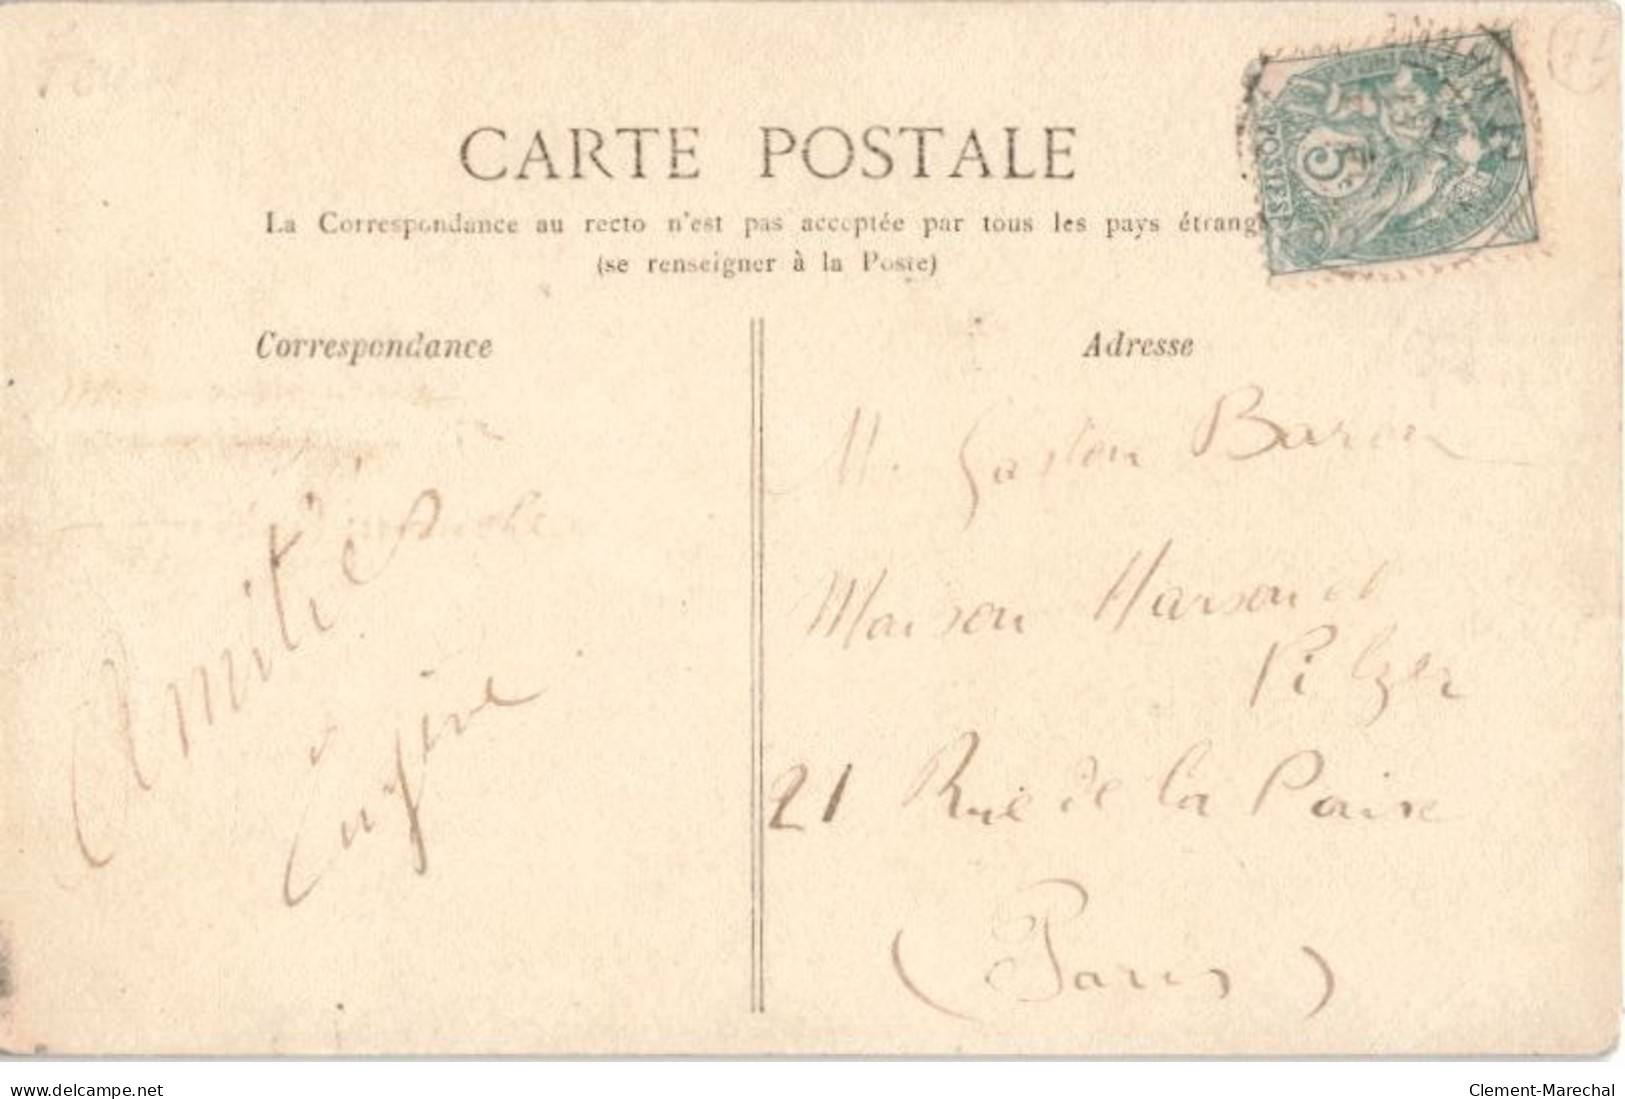 CARTE POSTALE
La Correspondance au recto n'est pas acceptée par tous les pays étrang
(se renseigner à la Poste)
Correspondance
Amitiés
Eugène
Adresse
M. Gaston Baron
Maison Marson et
Pilzer
21 Rue de la Paix
(Paris)
POSTES
5
www.delcampe.net
Clement-Marechal